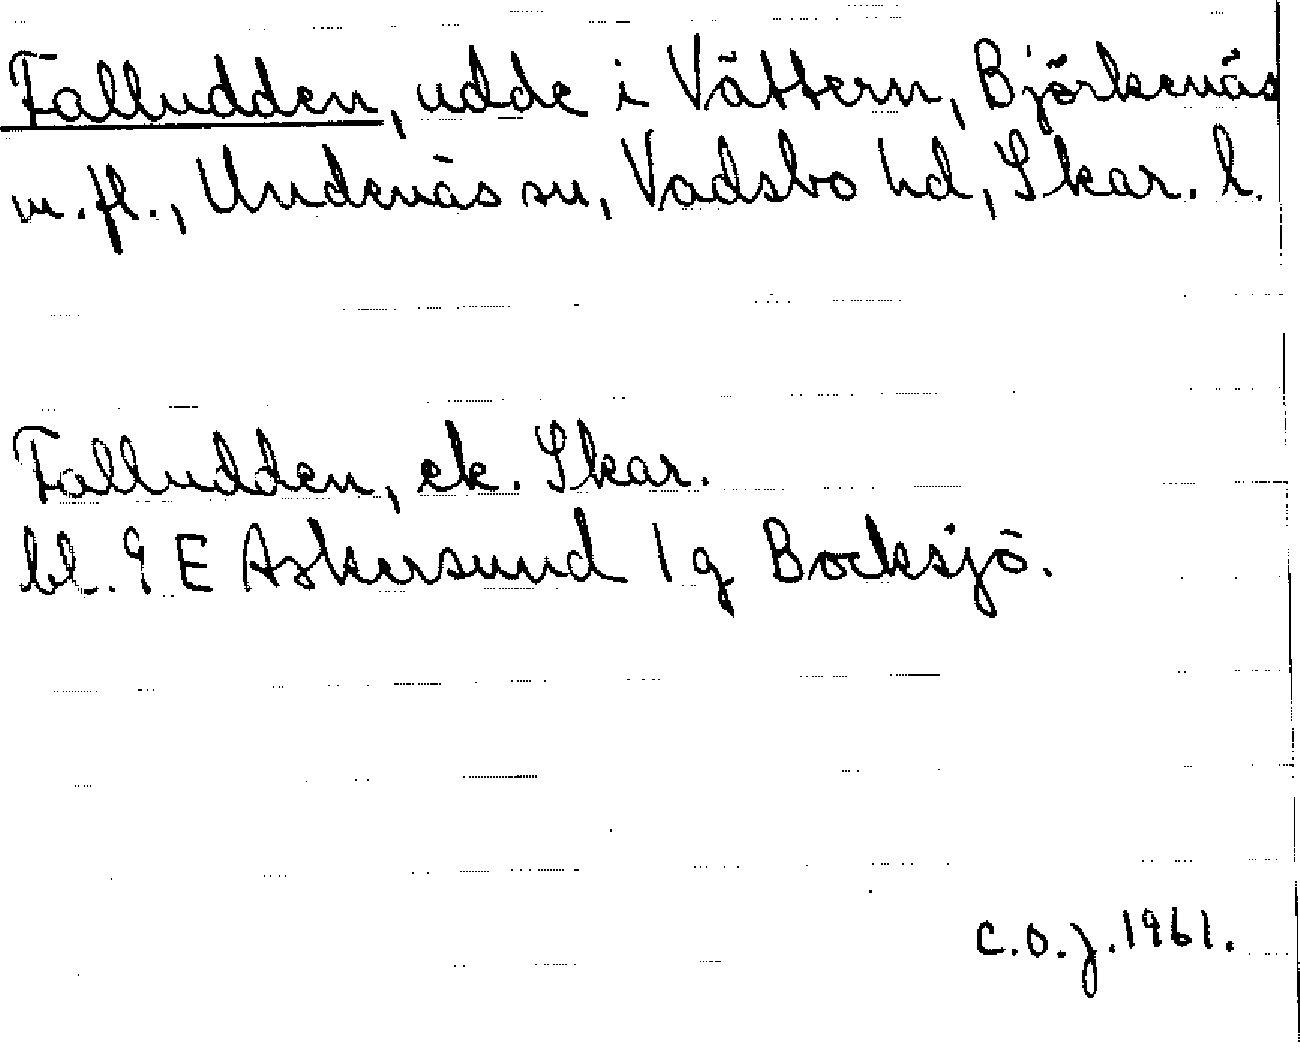 Falludden, udde i Vättern, Björkenäs
m.fl., Undenäs sn, Vadsbo hd, Skar. l.
Falludden, ek. Skar.
bl. 9 E Askersund 1 g Bocksjö.
C.O.J. 1961.